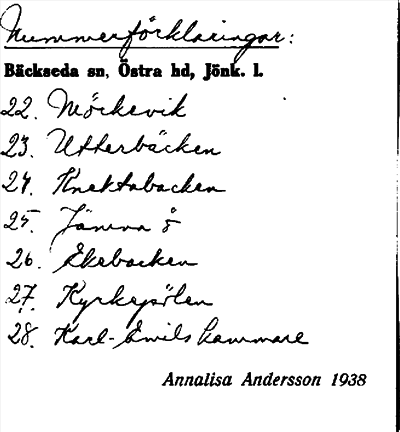 Nummerförklaringar:
Bäckseda sn, Östra hd, Jönk. l.
22. Mörkevik
23. Utterbäcken
24. Knektabacken
25. Jämna å
26. Ekebacken
27. Kyrkepölen
28. Karl-Emils kammare
Annalisa Andersson 1938